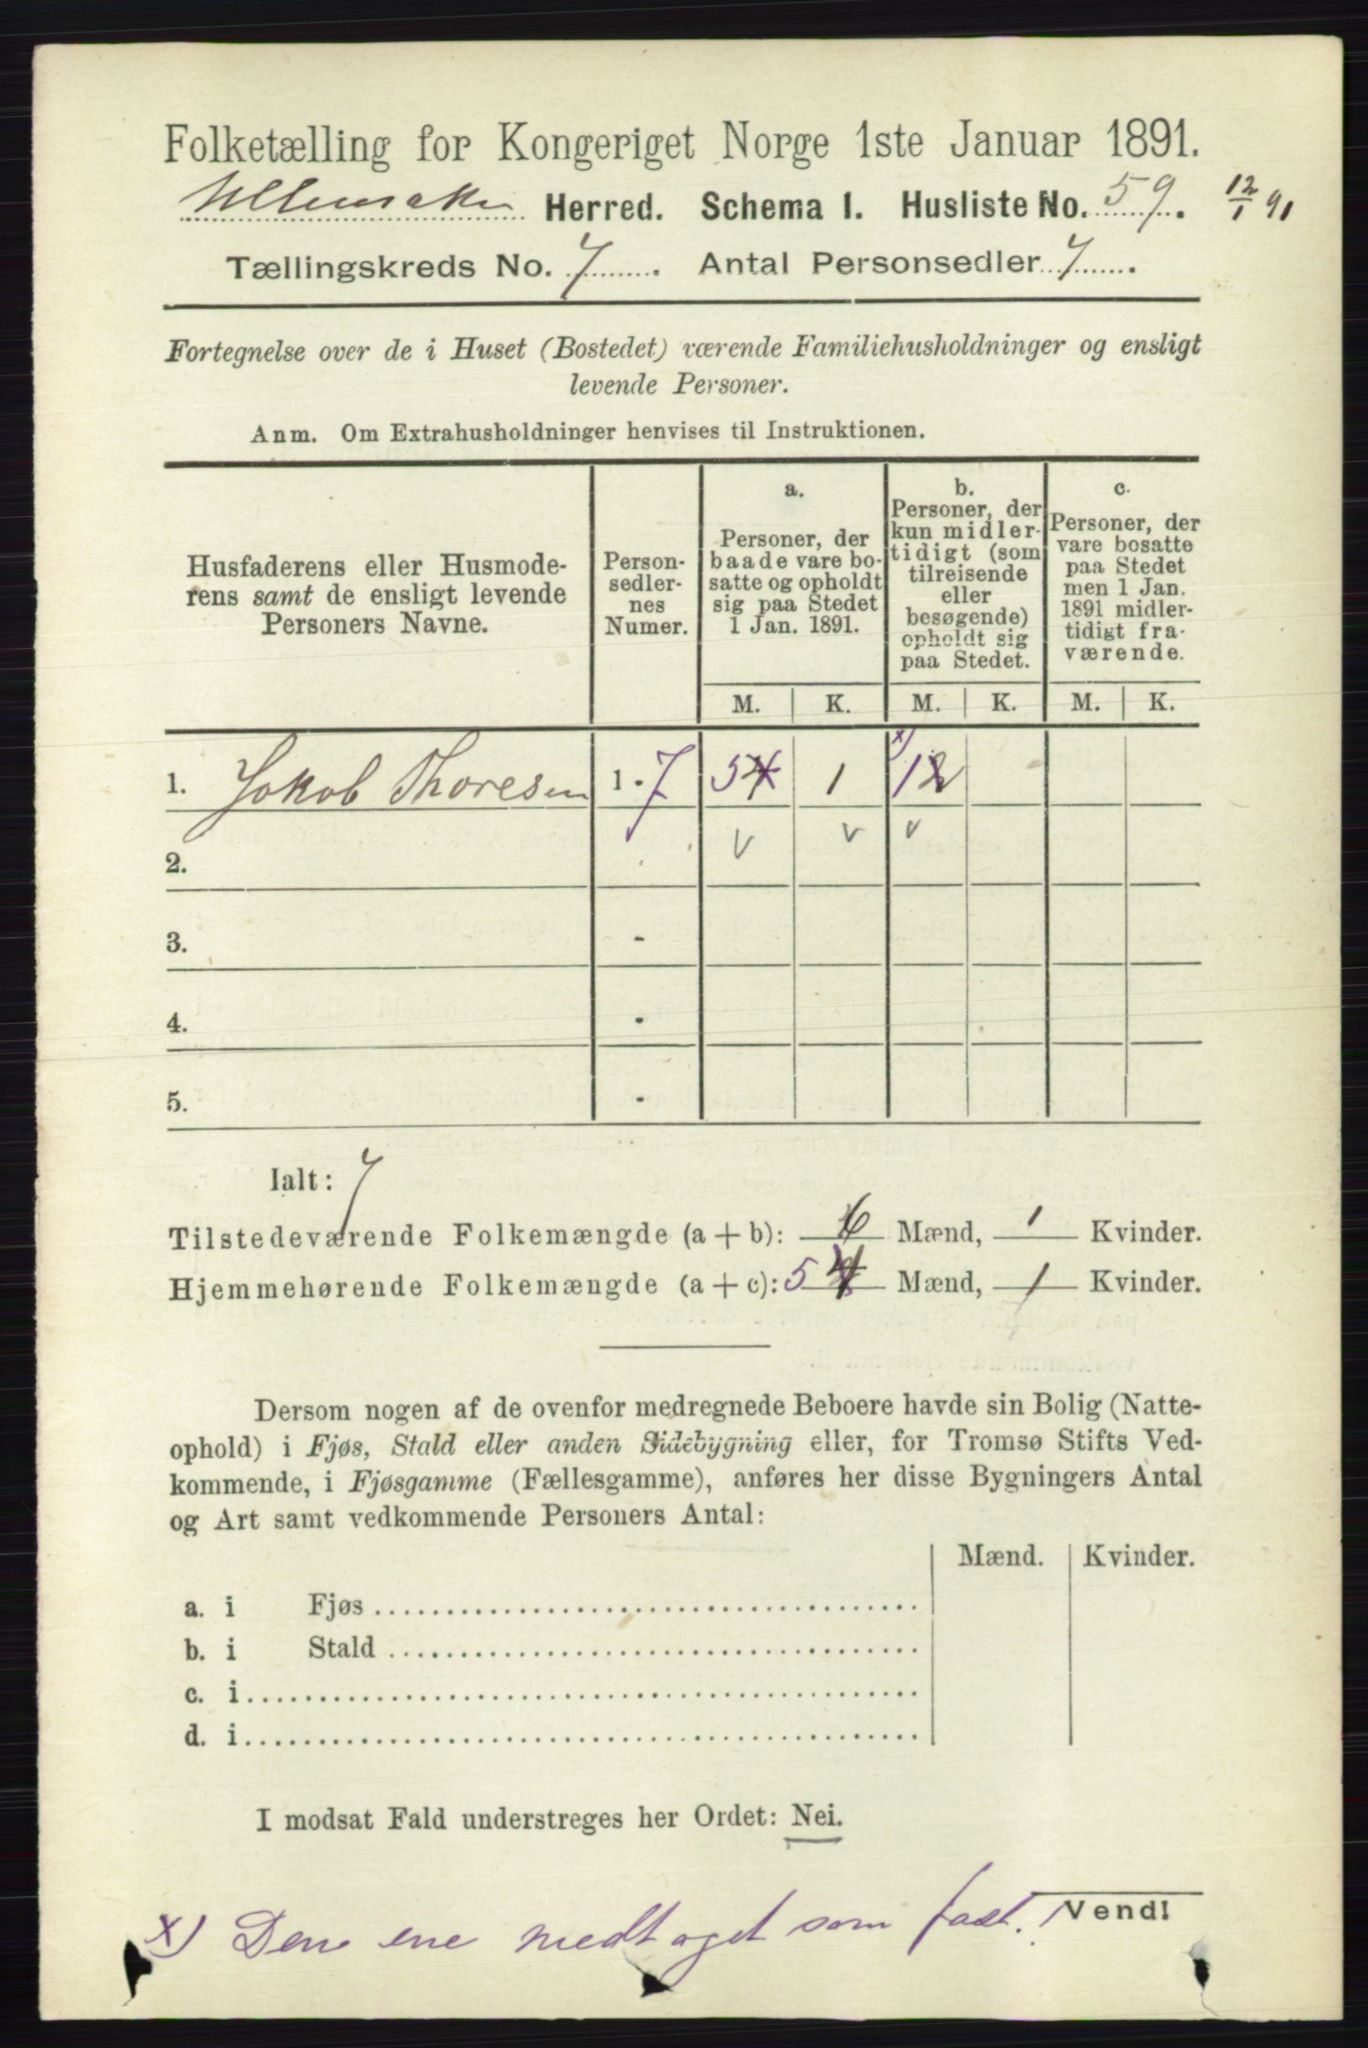 Folketælling for Kongeriget Norge 1ste Januar 1891.
Ullensaker Herred. Schema 1. Husliste No. 59. 12/1 91
Tællingskreds No. 7. Antal Personsedler 7.
Fortegnelse over de i Huset (Bostedet) værende Familiehusholdninger og ensligt
levende Personer.
Anm. Om Extrahusholdninger henvises til Instruktionen.
Husfaderens eller Husmode-
rens samt de ensligt levende
Personers Navne.
Person-
sedler-
nes
Numer.
a.
Personer, der
baade vare bo-
satte og opholdt
sig paa Stedet
1 Jan. 1891.
b.
Personer, der
kun midler-
tidigt (som
tilreisende
eller
besøgende)
opholdt sig
paa Stedet.
c.
Personer, der
vare bosatte
paa Stedet
men 1 Jan.
1891 midler-
tidigt fra-
værende.
M. K. M. K. M. K.
1. Jakob Thoresen 1-7 54 1 x) 12
2. v v v
3. -
4. -
5. -
Ialt: 7
Tilstedeværende Folkemængde (a + b): 6 Mænd, 1 Kvinder.
Hjemmehørende Folkemængde (a + c): 5 4 Mænd, 1 Kvinder.
Dersom nogen af de ovenfor medregnede Beboere havde sin Bolig (Natte-
ophold) i Fjøs, Stald eller anden Sidebygning eller, for Tromsø Stifts Ved-
kommende, i Fjøsgamme (Fællesgamme), anføres her disse Bygningers Antal
og Art samt vedkommende Personers Antal:
Mænd. Kvinder.
a. i Fjøs
b. i Stald
c. i
d. i
I modsat Fald understreges her Ordet: Nei.
Vend!
x) Den ene medtaget som fast.